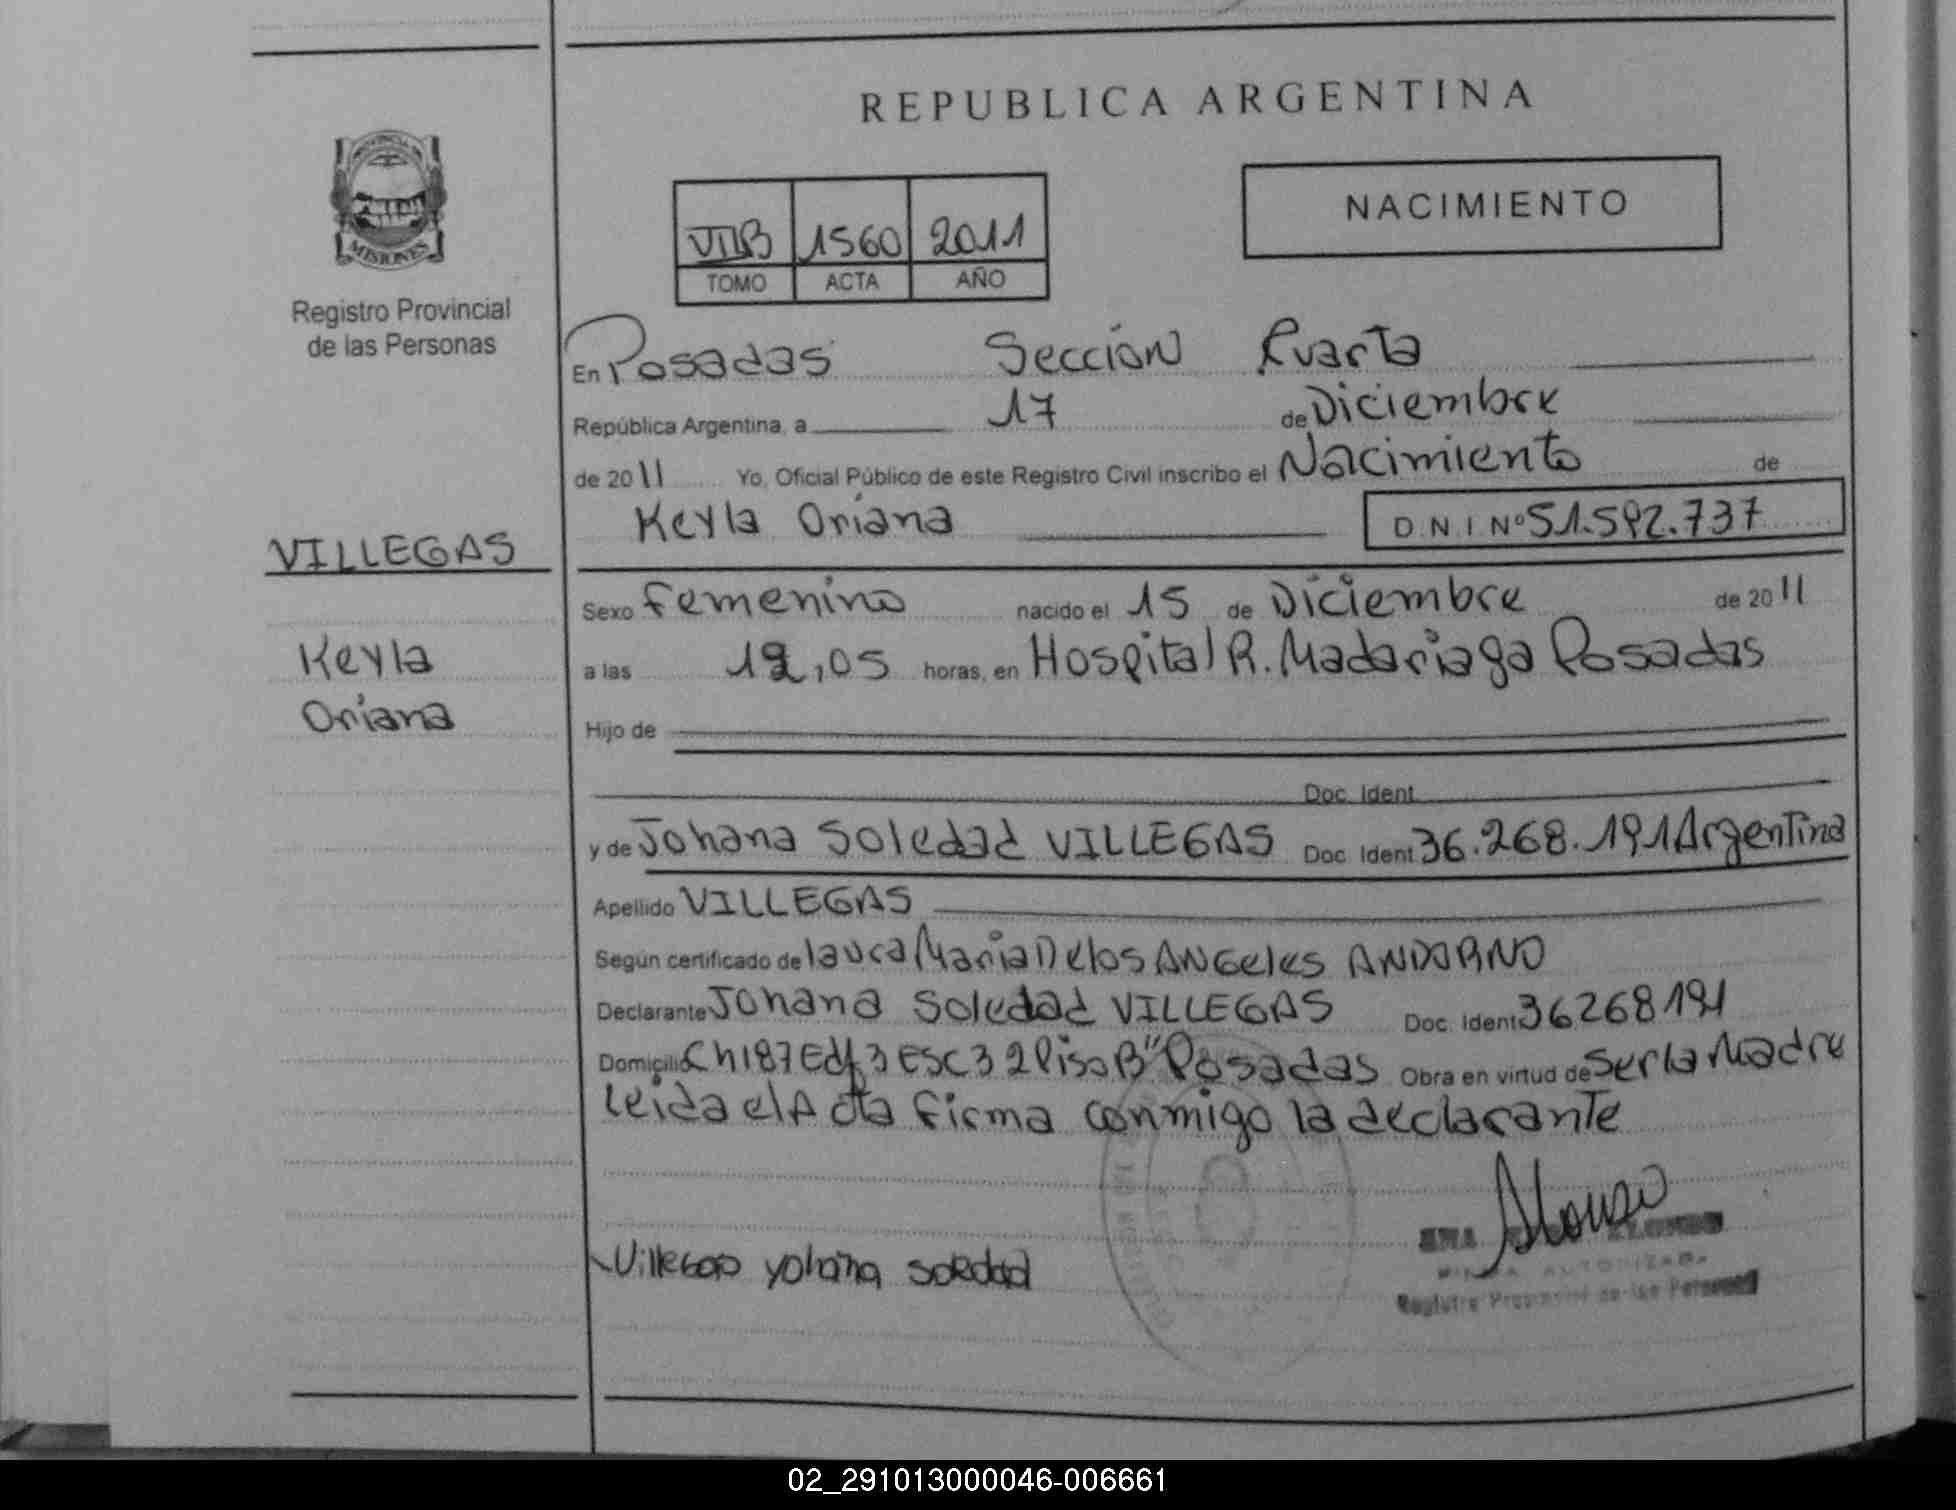 REPUBLICA ARGENTINA
PROVINCIA DE
MISIONES
Registro Provincial
de las Personas
VIIB 1560 2011
TOMO ACTA AÑO
NACIMIENTO
En Posadas Sección Cuarta
República Argentina, a 17 de Diciembre
de 2011 Yo, Oficial Público de este Registro Civil inscribo el Nacimiento de
Keyla Oriana D.N.I Nº 51.592.737
VILLEGAS
Keyla
Oriana
Sexo femenino nacido el 15 de Diciembre de 2011
a las 12,05 horas, en Hospital R. Madariaga Posadas
Hijo de
Doc. Ident
y de Johana Soledad VILLEGAS Doc. Ident 36.268.191 Argentina
Apellido VILLEGAS
Según certificado de laura Maria De los ANGeles ANDORNO
Declarante Johana Soledad VILLEGAS Doc. Ident 36268191
Domicilio Ch187 Edf 3 ESC 3 2 Piso B" Posadas Obra en virtud de ser la Madre
leida el Acta firma conmigo la declarante
Villegas yohana soledad
Registro Provincial de las Personas
02_291013000046-006661